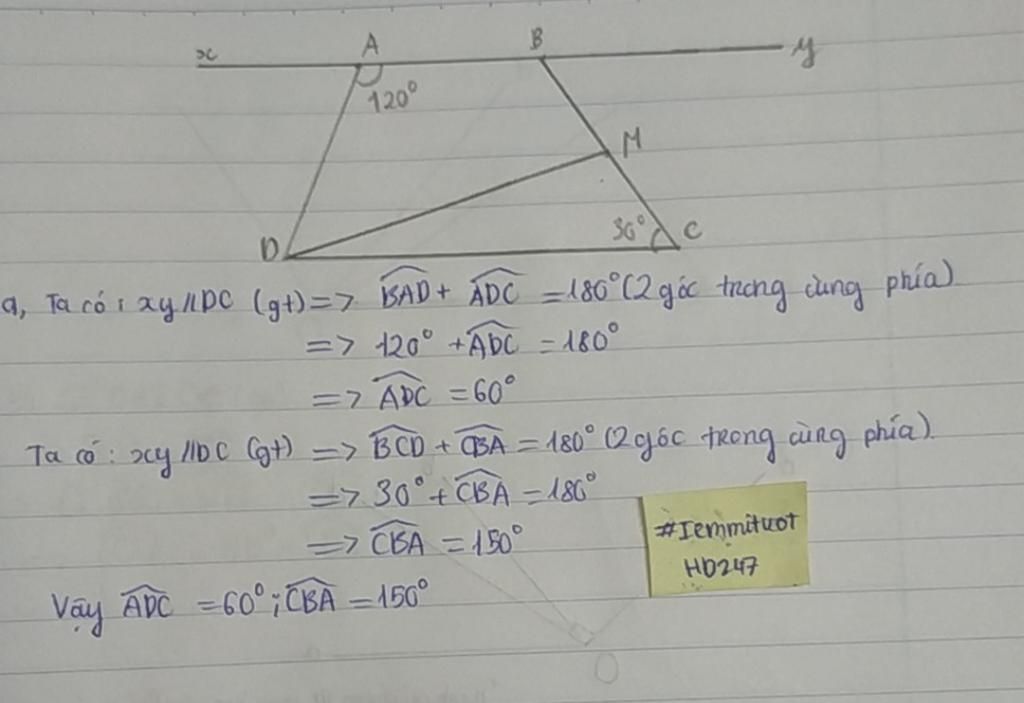 x A B y
120°
M
D 30° C
a, Ta có: xy//DC (gt) => BAD + ADC = 180° (2 góc trong cùng phía)
=> 120° + ADC = 180°
=> ADC = 60°
Ta có: xy//DC (gt) => BCD + CBA = 180° (2 góc trong cùng phía).
=> 30° + CBA = 180°
=> CBA = 150°
Vậy ADC = 60°; CBA = 150°
#Iemmituot
HD247